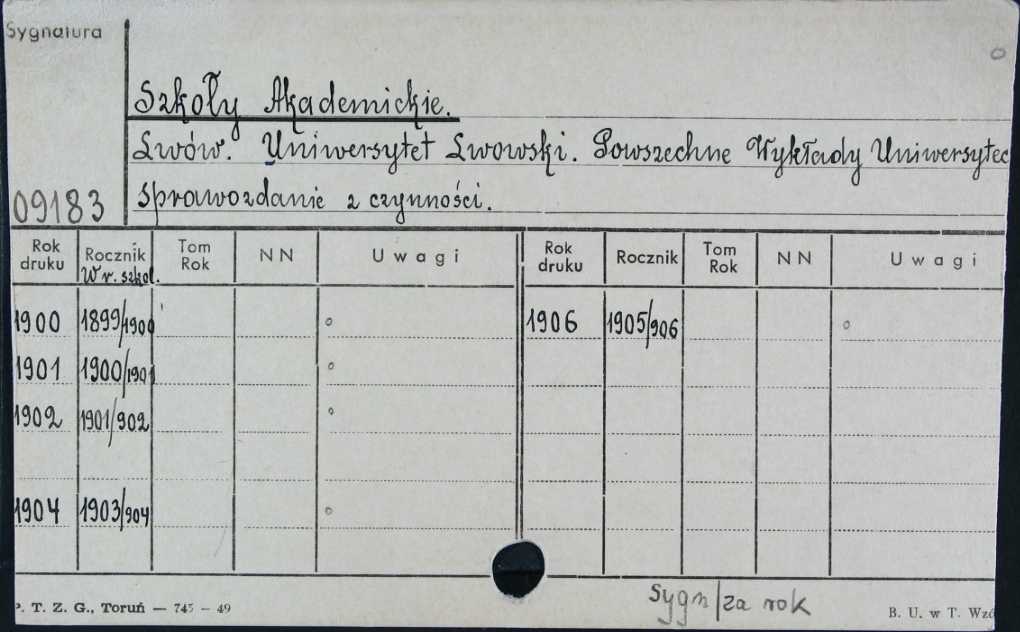 Sygnatura
Szkoły Akademickie.
Lwów. Uniwersytet Lwowski. Powszechne Wykłady Uniwersytec
09183 sprawozdanie z czynności.
Rok druku Rocznik W r. szkol. Tom Rok NN Uwagi Rok druku Rocznik Tom Rok NN Uwagi
1900 1899/1900 1906 1905/906
1901 1900/1901
1902 1901/902
1904 1903/904
Sygn/za rok
P. T. Z. G., Toruń — 745 – 49 B. U. w T. Wzó